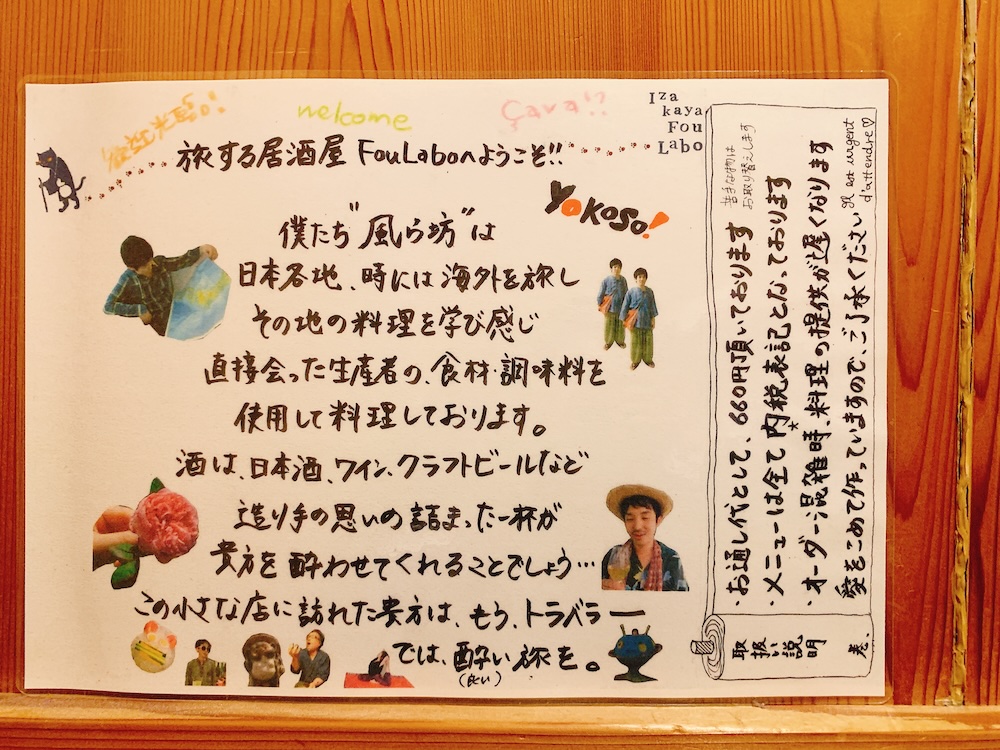 欢迎光臨!
welcome
Çava!?
Iza
kaya
Fou
Labo
旅する居酒屋 FouLaboへようこそ!!
YOKOSO!
僕たち"風ら坊"は
日本各地、時には海外を旅し
その地の料理を学び感じ
直接会った生産者の、食材・調味料を
使用して料理しております。
酒は、日本酒、ワイン、クラフトビールなど
造り手の思いの詰まった一杯が
貴方を酔わせてくれることでしょう…
この小さな店に訪れた貴方は、もう、トラベラー
では、酔い旅を。
(良い)
・お通し代として、660円頂いております
苦手な物は
お取り替えします
・メニューは全て内税表記となっております
・オーダー混雑時、料理の提供が遅くなります
愛をこめて作っていますので、ご了承ください
d'attendre♡
取扱い説明
巻、